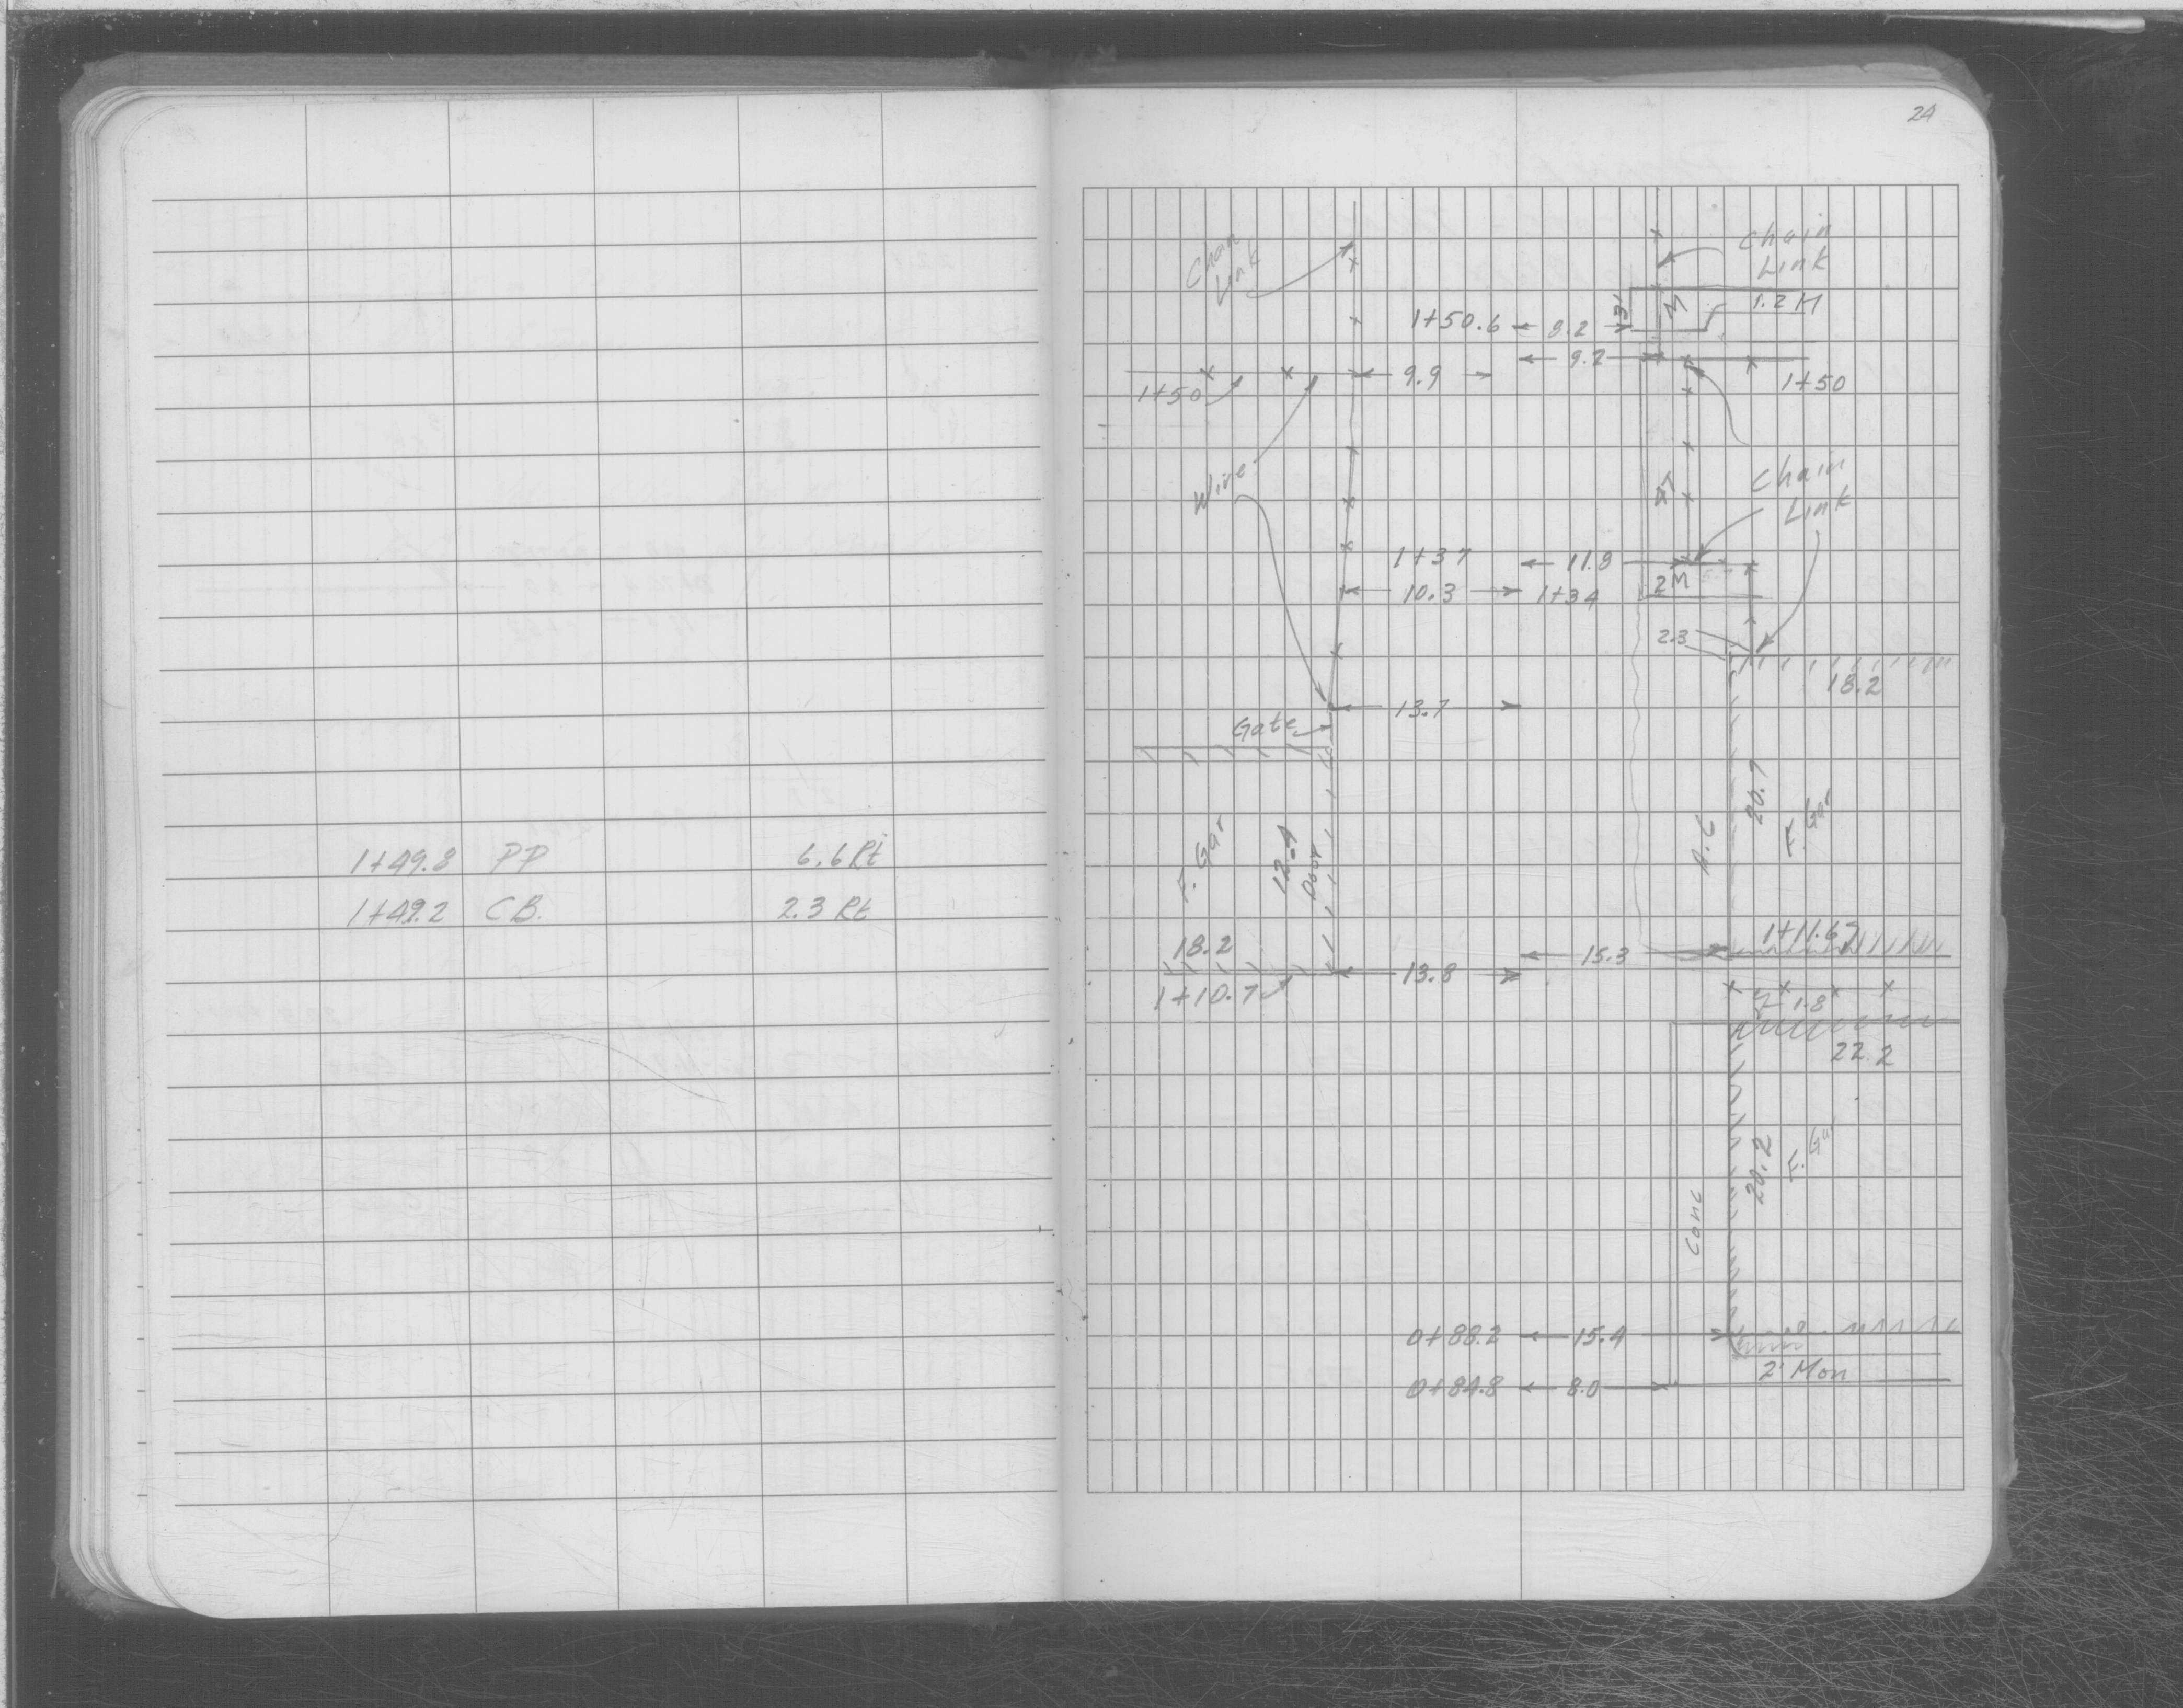 24
1+49.8 PP 6.6 Rt
1+49.2 CB. 2.3 Rt
Chain
Link
Chain
Link
1.2 M
1+50.6 8.2
9.2
9.9
1+50
1+50
Wire
Chain
Link
1+37 11.8
10.3 1+34
2 M
2.3
18.2
13.7
Gate
20.7
F. Gar
A.C
F. Gar
12.4
Door
18.2
1+11.67
15.3
13.8
1+10.7
1.8
22.2
20.2
F. Gar
Conc
0+88.2 15.4
2' Mon
0+84.8 8.0